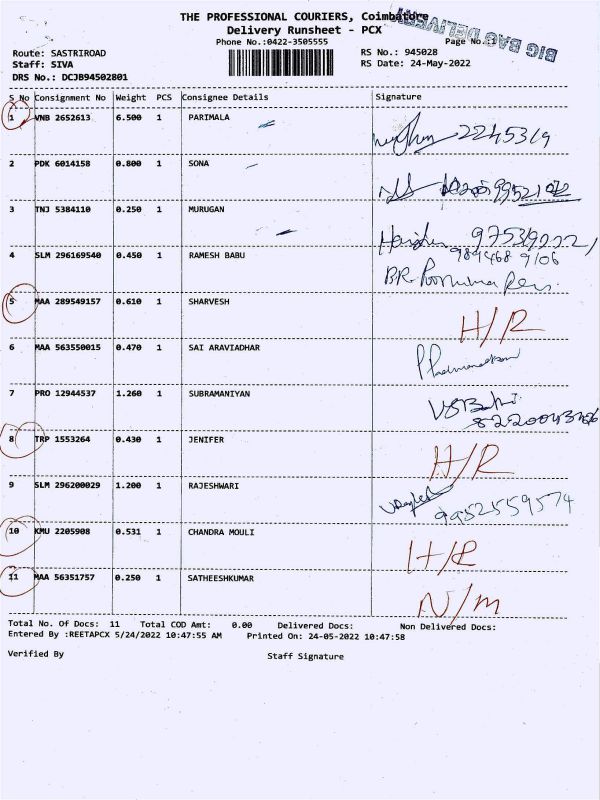 THE PROFESSIONAL COURIERS, Coimbatore
Delivery Runsheet - PCX
BIG BAG DELIVERY
Phone No.:0422-3505555
Page No.:1
Route: SASTRIROAD
RS No.: 945028
Staff: SIVA
RS Date: 24-May-2022
DRS No.: DCJB94502801
S No Consignment No Weight PCS Consignee Details Signature
1 VNB 2652613 6.500 1 PARIMALA 2245319
2 PDK 6014158 0.800 1 SONA
3 TNJ 5384110 0.250 1 MURUGAN
4 SLM 296169540 0.450 1 RAMESH BABU
5 MAA 289549157 0.610 1 SHARVESH H/R
6 MAA 563550015 0.470 1 SAI ARAVIADHAR
7 PRO 12944537 1.260 1 SUBRAMANIYAN
8 TRP 1553264 0.430 1 JENIFER H/R
9 SLM 296200029 1.200 1 RAJESHWARI 9952559574
10 KMU 2205908 0.531 1 CHANDRA MOULI H/R
11 MAA 56351757 0.250 1 SATHEESHKUMAR N/m
Total No. Of Docs: 11 Total COD Amt: 0.00 Delivered Docs: Non Delivered Docs:
Entered By :REETAPCX 5/24/2022 10:47:55 AM Printed On: 24-05-2022 10:47:58
Verified By Staff Signature